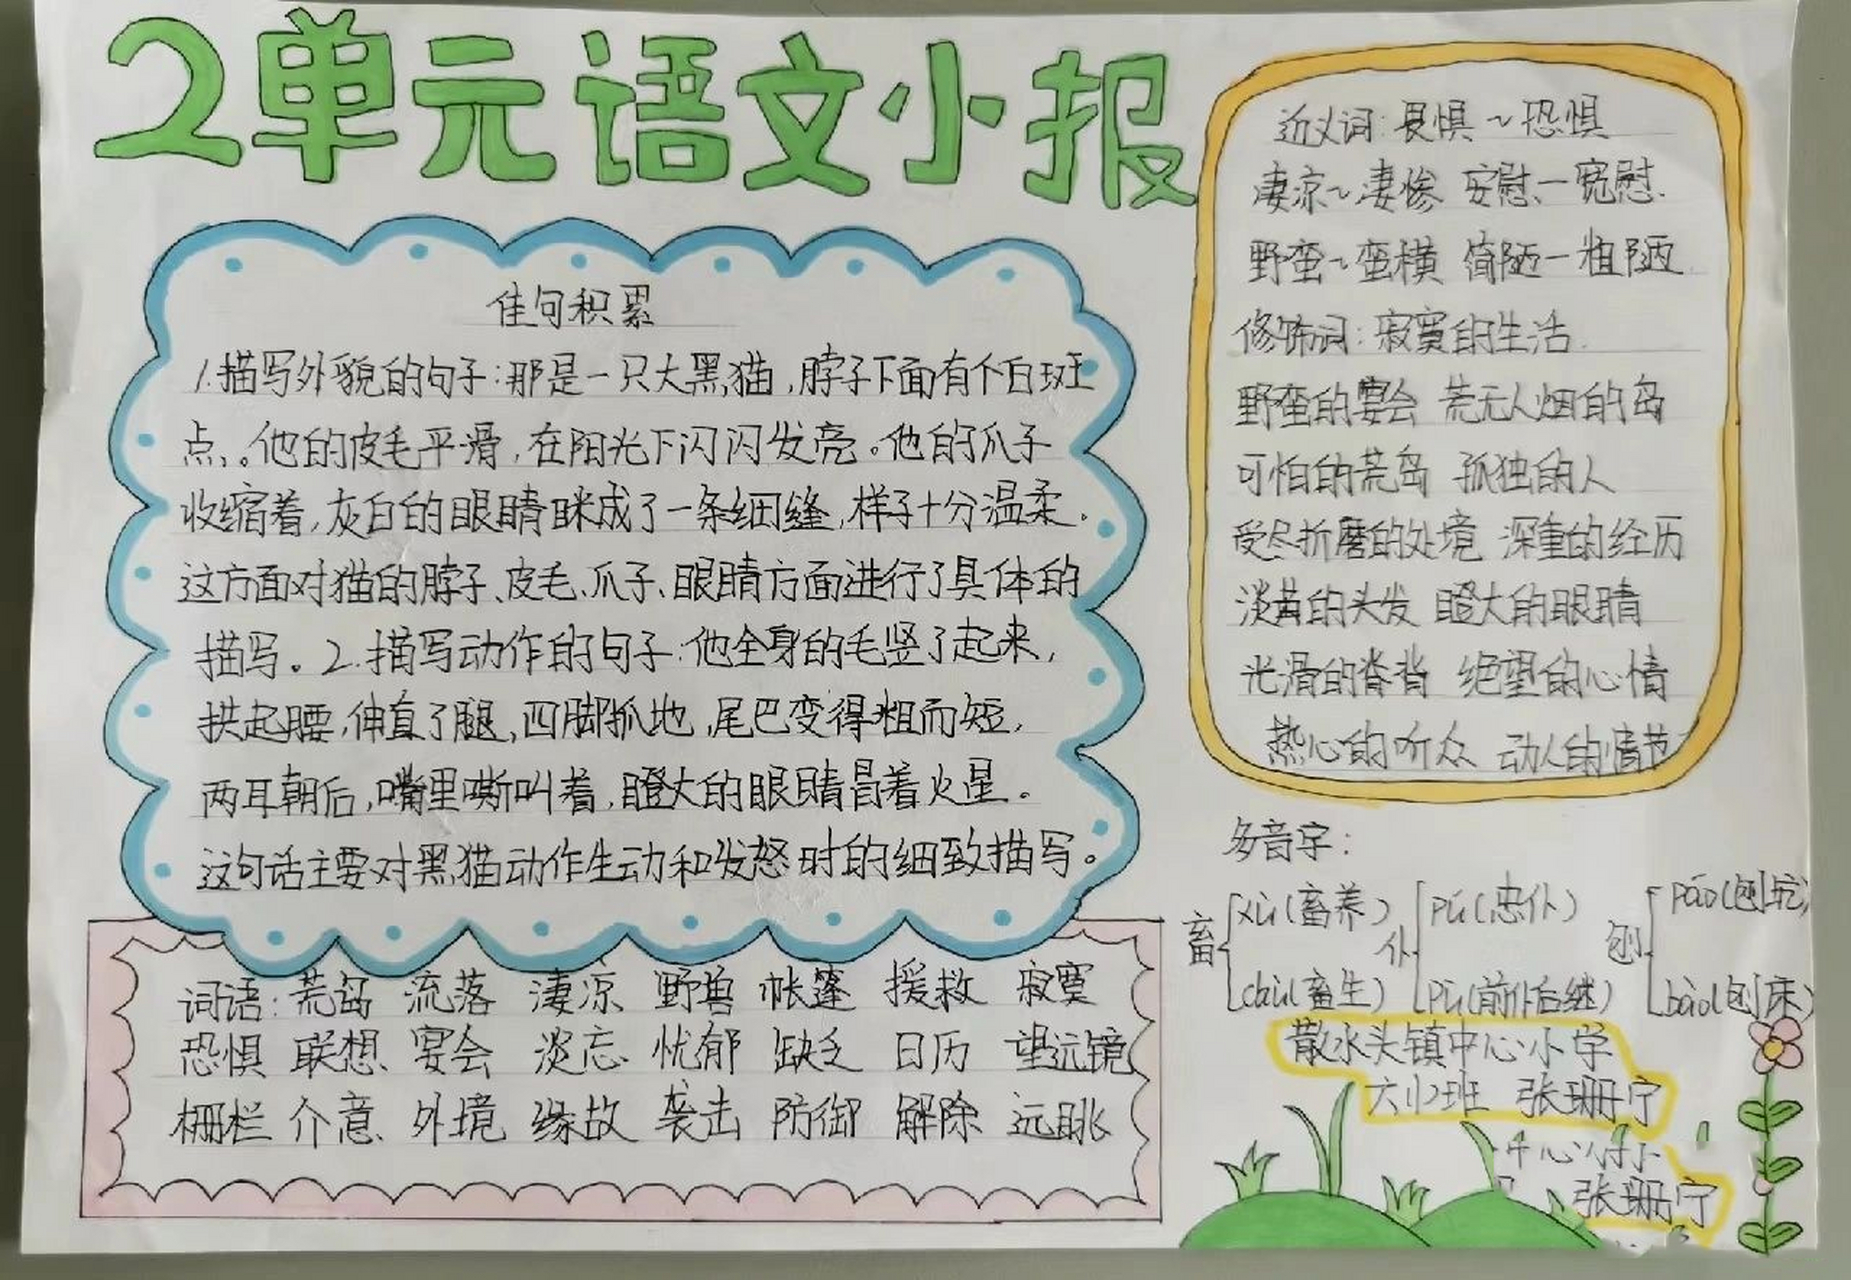 2单元语文小报
佳句积累
1.描写外貌的句子:那是一只大黑猫,脖子下面有个白斑
点、。他的皮毛平滑,在阳光下闪闪发亮。他的爪子
收缩着,灰白的眼睛眯成了一条细缝,样子十分温柔。
这方面对猫的脖子、皮毛、爪子、眼睛方面进行了具体的
描写。2.描写动作的句子:他全身的毛竖了起来,
拱起腰,伸直了腿,四脚抓地,尾巴变得粗而短,
两耳朝后,嘴里嘶叫着,瞪大的眼睛冒着火星。
这句话主要对黑猫动作生动和发怒时的细致描写。
词语:荒岛 流落 凄凉 野兽 帐篷 援救 寂寞
恐惧 联想 宴会 淡忘 忧郁 缺乏 日历 望远镜
栅栏 介意 外境 缘故 袭击 防御 解除 远眺
近义词:畏惧~恐惧
凄凉~凄惨 安慰—宽慰
野蛮~蛮横 简陋—粗陋
修饰词:寂寞的生活
野蛮的宴会 荒无人烟的岛
可怕的荒岛 孤独的人
受尽折磨的处境 深重的经历
淡黄的头发 瞪大的眼睛
光滑的脊背 绝望的心情
热心的听众 动人的情节
多音字:
畜 xù(畜养) chù(畜生)
仆 pú(忠仆) pū(前仆后继)
刨 páo(刨坑) bào(刨床)
散水头镇中心小学
六(2)班 张珊宁
中心小
张珊宁